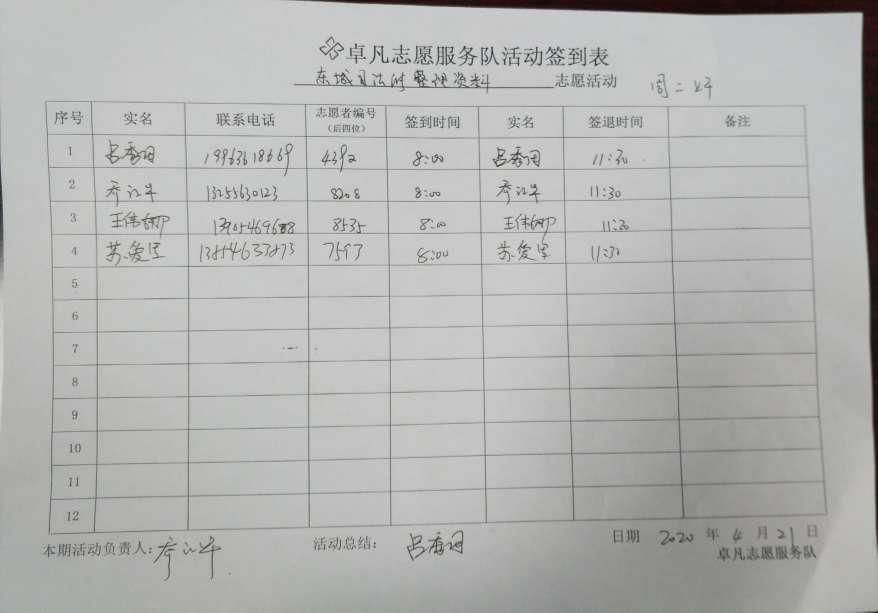 卓凡志愿服务队活动签到表
东城司法所整理资料 志愿活动 周二
序号 实名 联系电话 志愿者编号（后四位） 签到时间 实名 签退时间 备注
1 吕香闺 19963618669 4392 8:00 吕香闺 11:30
2 13255630123 8208 8:00 11:30
3 王伟柳 8535 8:00 王伟柳 11:30
4 苏爱军 13854637873 7593 8:00 苏爱军 11:30
5
6
7
8
9
10
11
12
本期活动负责人: 活动总结: 吕香闺 日期 2020 年 4 月 21 日
卓凡志愿服务队